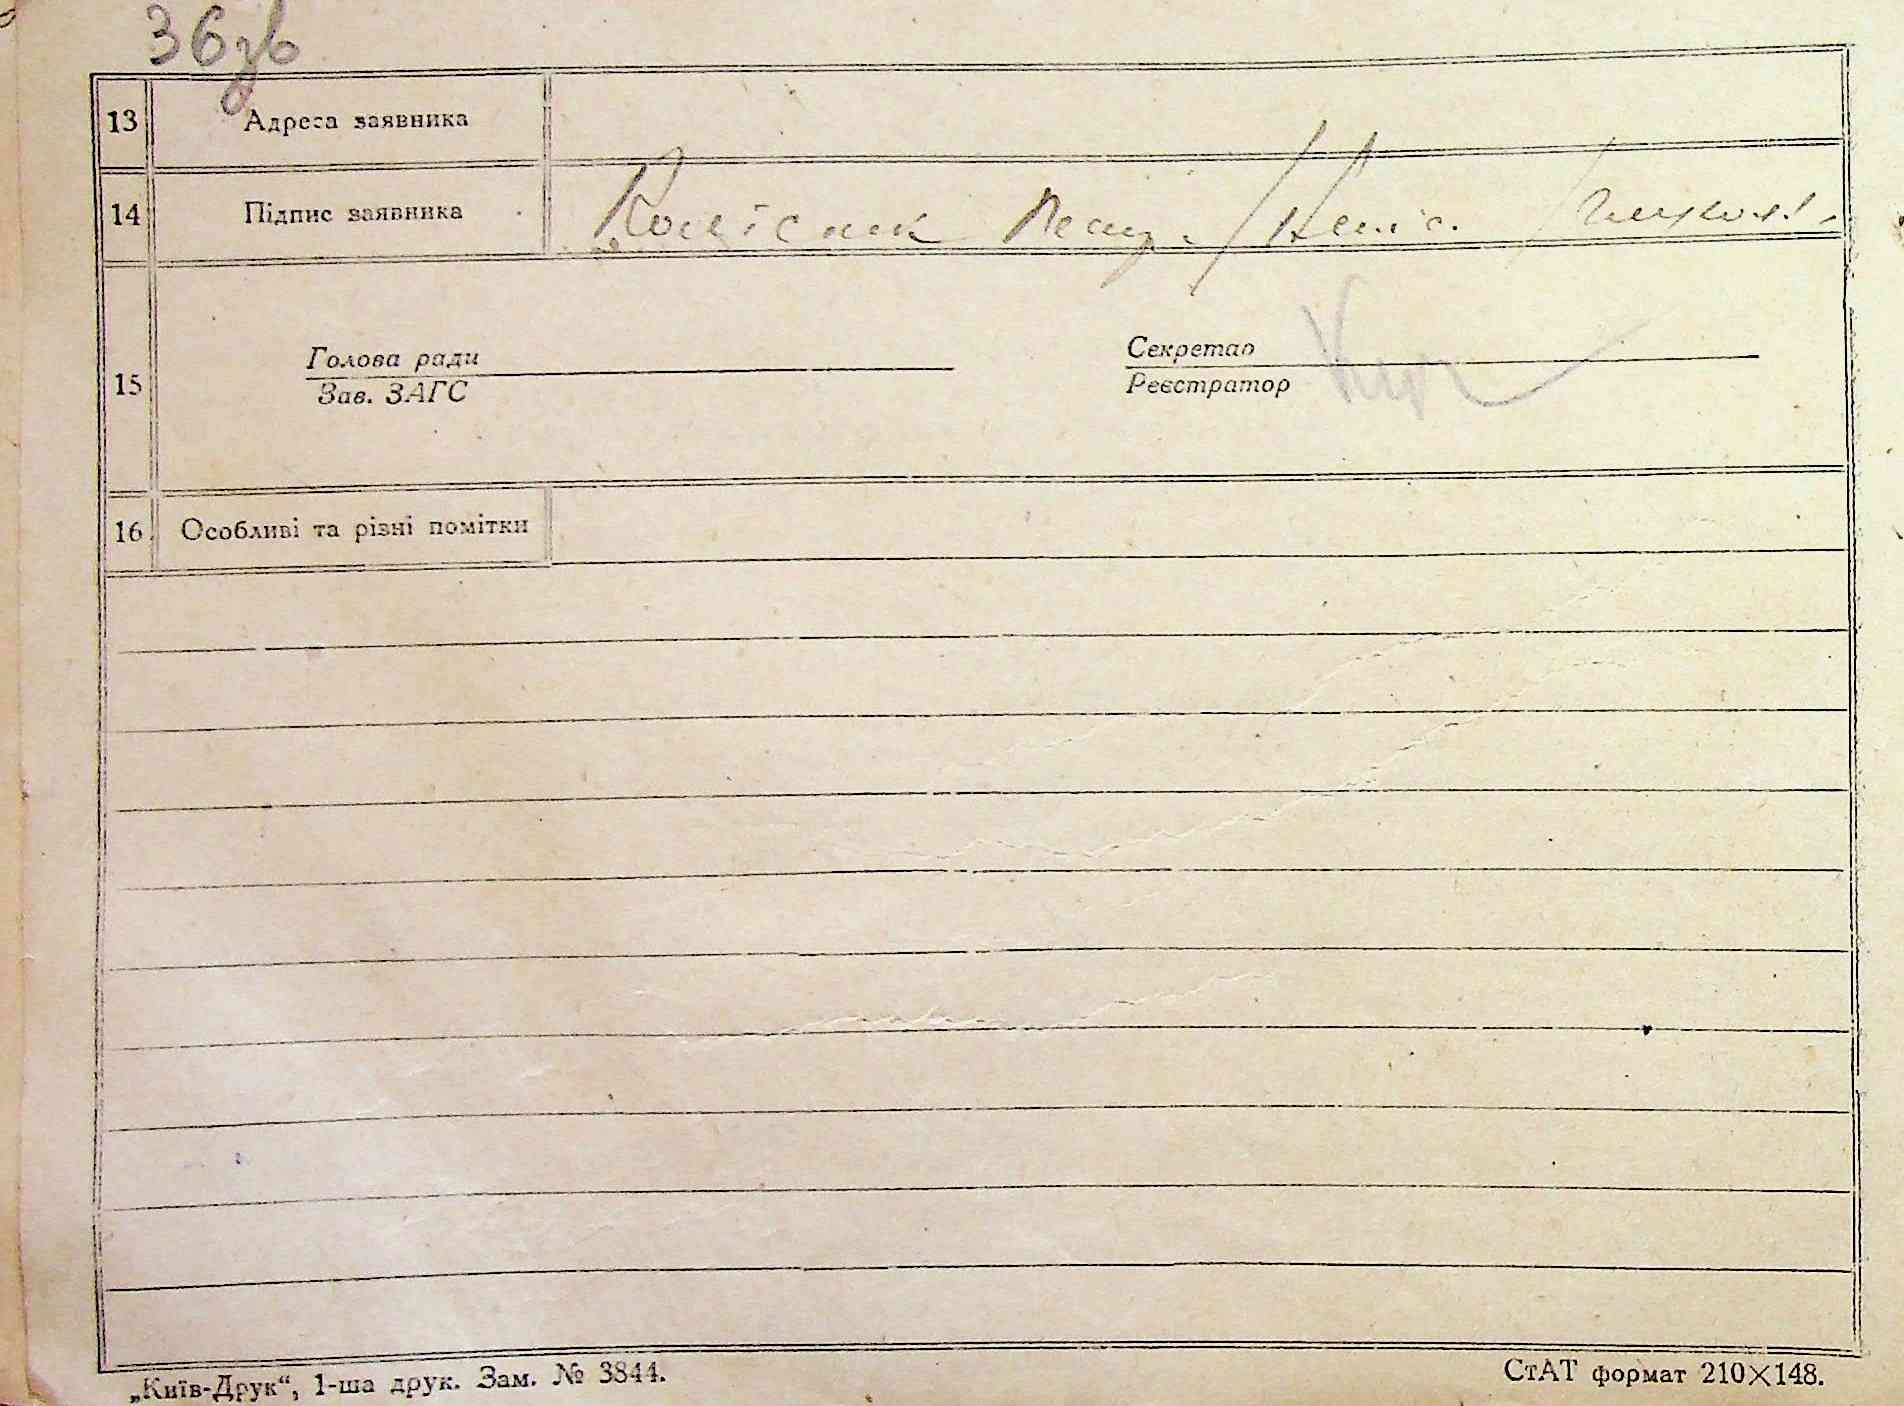 36 зв
13 Адреса заявника
14 Підпис заявника Колісник
Голова ради Секретар
15
Зав. ЗАГС Реєстратор
16 Особливі та різні помітки
„Київ-Друк“, 1-ша друк. Зам. № 3844. СтАТ формат 210×148.